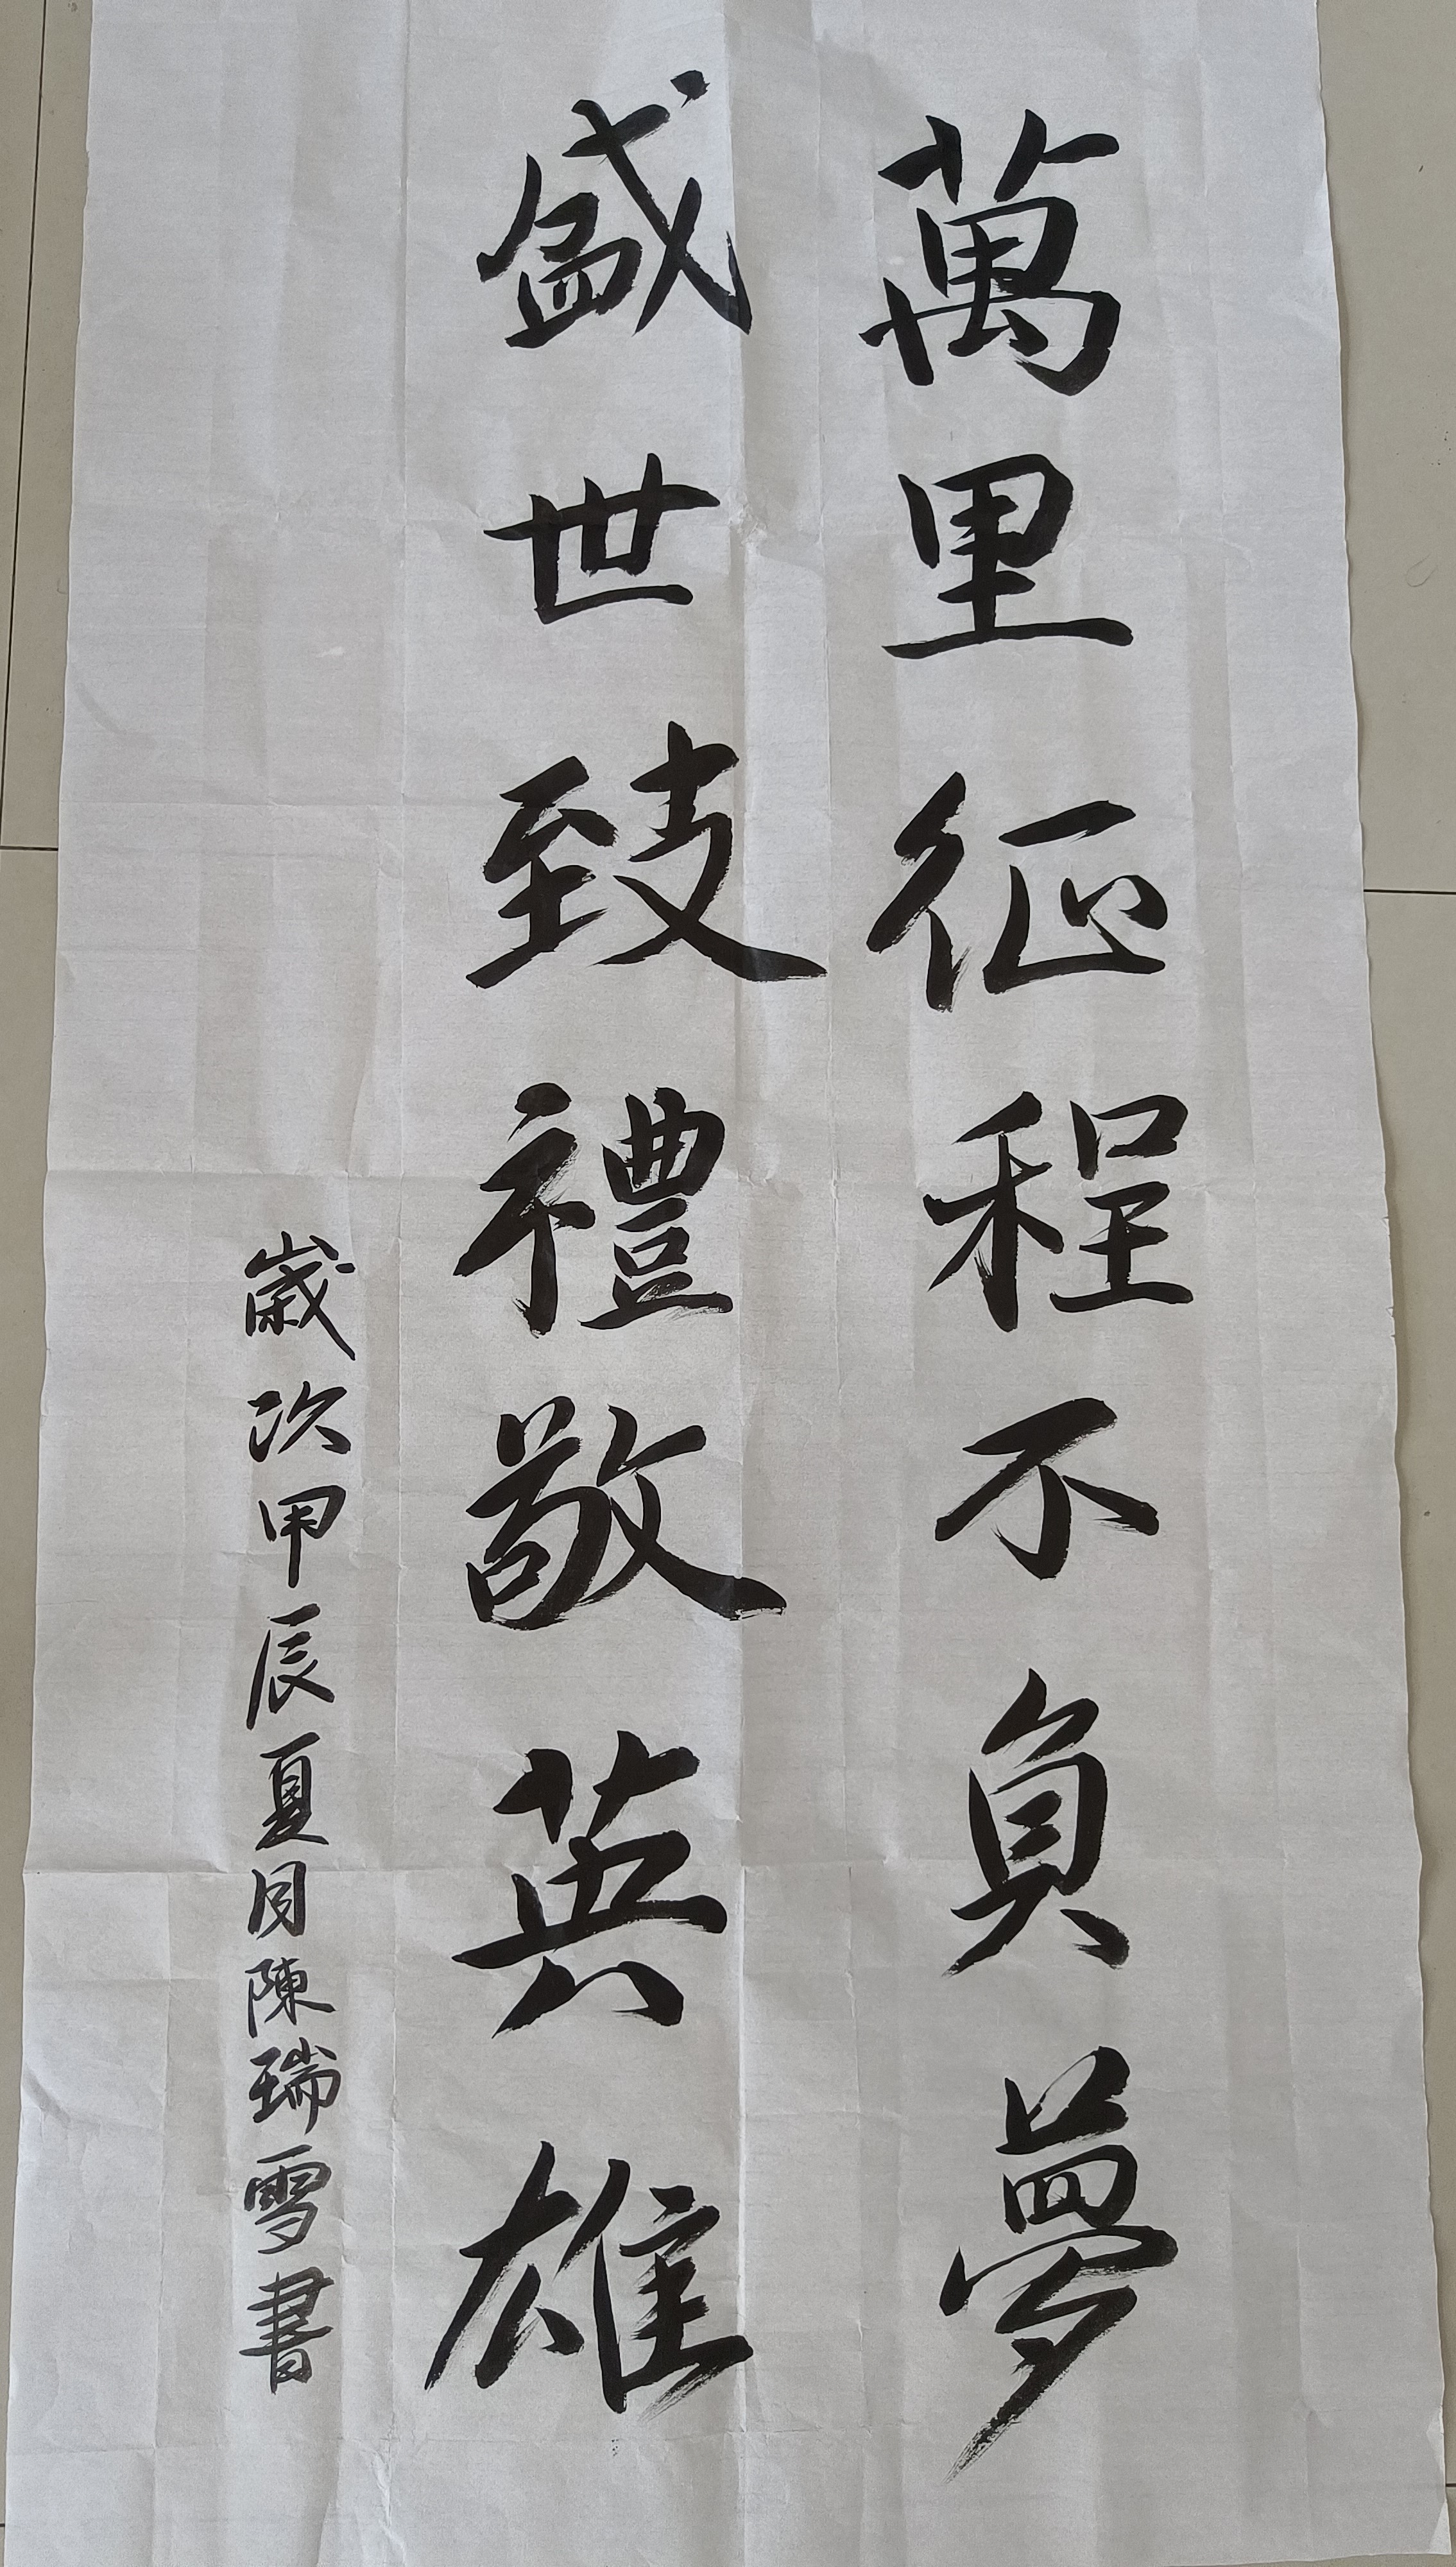 萬里征程不負夢
盛世致禮敬英雄
歲次甲辰夏月陳瑞雪書